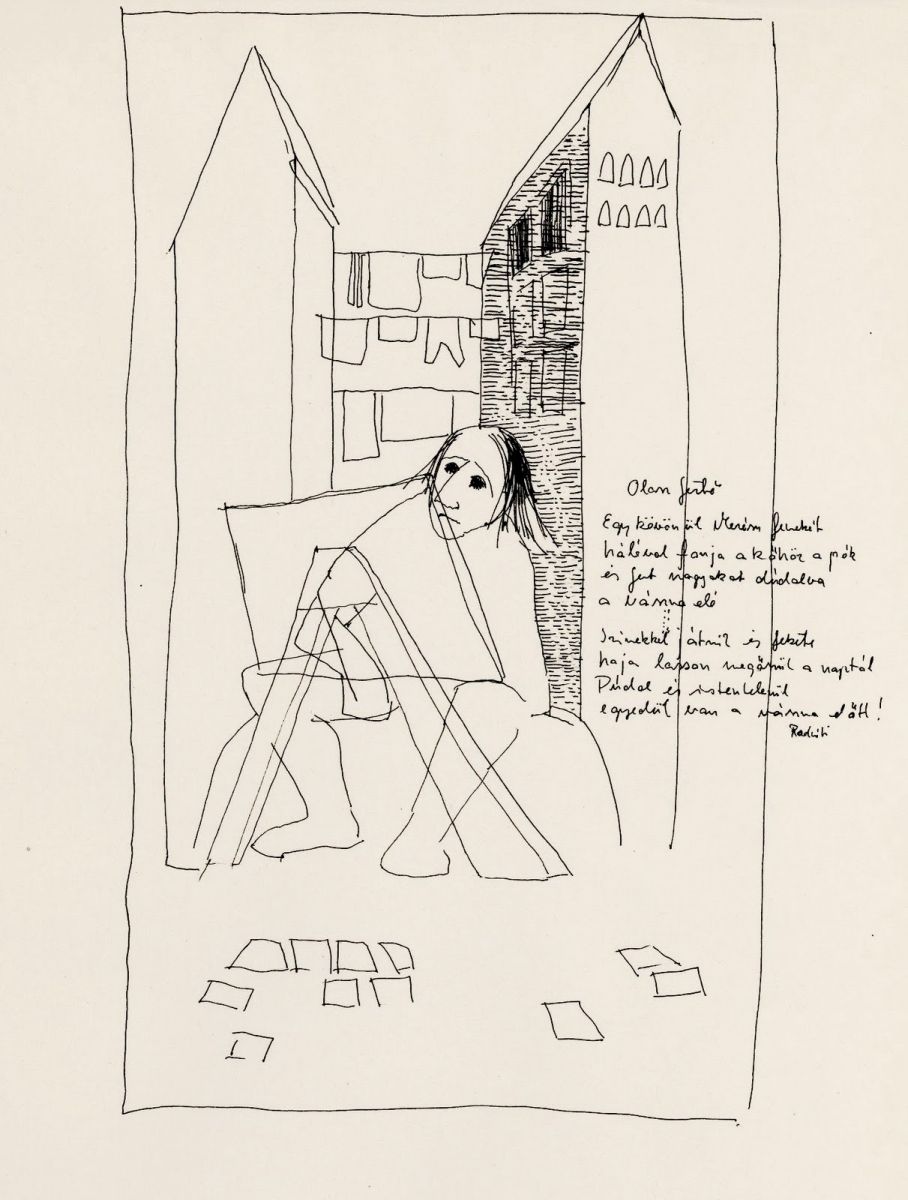 Olasz festő
Egy kövön ül Merész fenekét
hálóval fonja a kőhöz a pók
és fest nagyokat dúdolva
a vászna elé
Szinekkel és fekete
haja lassan megőszül a naptól
Dúdol és istentelenül
egyedül van a vászna előtt!
Radnóti